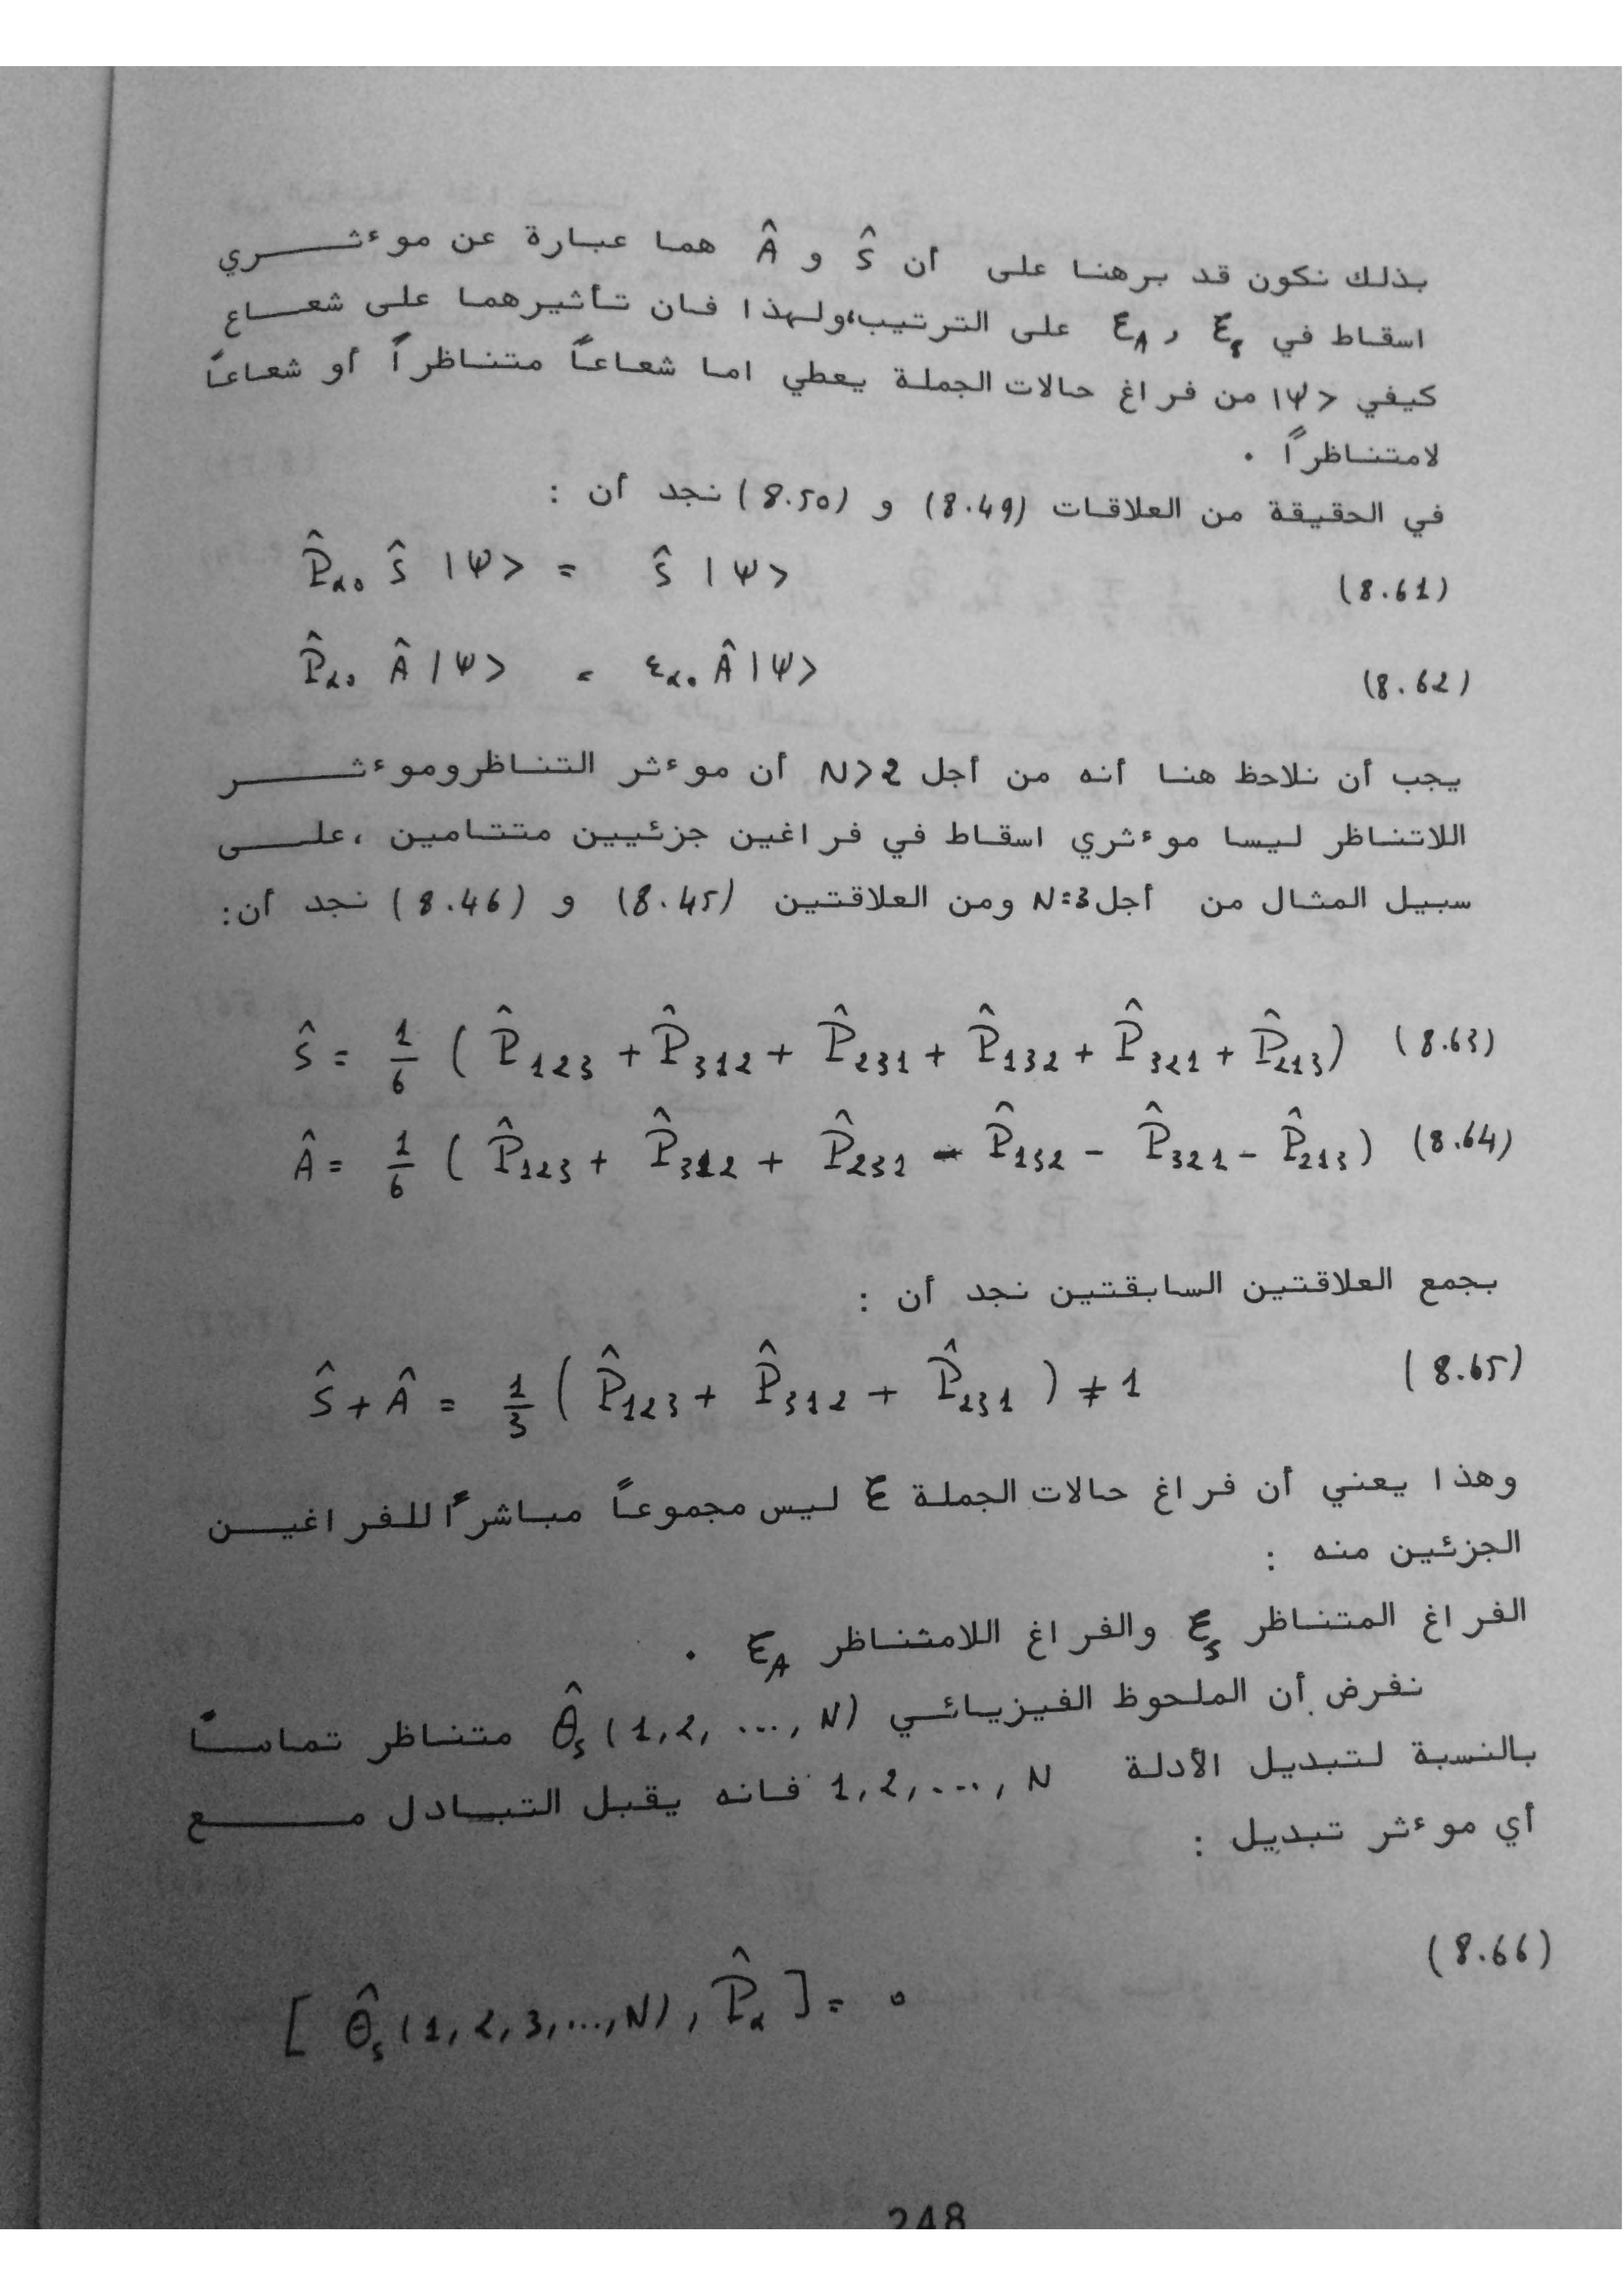 بذلك نكون قد برهنا على أن Ŝ و Â هما عبارة عن موءثري
اسقاط في ℰ_s و ℰ_A على الترتيب،ولهذا فان تأثيرهما على شعاع
كيفي |Ψ> من فراغ حالات الجملة يعطي اما شعاعاً متناظراً أو شعاعاً
لامتناظراً .
في الحقيقة من العلاقات (8.49) و (8.50) نجد أن :
P̂_α₀ Ŝ |Ψ> = Ŝ |Ψ> (8.61)
P̂_α₀ Â |Ψ> = ε_α₀ Â |Ψ> (8.62)
يجب أن نلاحظ هنا أنه من أجل N>2 أن موءثر التناظروموءثر
اللاتناظر ليسا موءثري اسقاط في فراغين جزئيين متتامين ،على
سبيل المثال من أجل N=3 ومن العلاقتين (8.45) و (8.46) نجد أن:
Ŝ = 1/6 ( P̂₁₂₃ + P̂₃₁₂ + P̂₂₃₁ + P̂₁₃₂ + P̂₃₂₁ + P̂₂₁₃) (8.63)
Â = 1/6 ( P̂₁₂₃ + P̂₃₁₂ + P̂₂₃₁ - P̂₁₃₂ - P̂₃₂₁ - P̂₂₁₃) (8.64)
بجمع العلاقتين السابقتين نجد أن :
Ŝ + Â = 1/3 ( P̂₁₂₃ + P̂₃₁₂ + P̂₂₃₁ ) ≠ 1 (8.65)
وهذا يعني أن فراغ حالات الجملة ℰ ليس مجموعاً مباشراً للفراغين
الجزئين منه :
الفراغ المتناظر ℰ_s والفراغ اللامتناظر ℰ_A .
نفرض أن الملحوظ الفيزيائي θ̂_s (1,2, ..., N) متناظر تماماً
بالنسبة لتبديل الأدلة 1,2,..., N فانه يقبل التبادل مع
أي موءثر تبديل :
[ θ̂_s (1,2,3,...,N), P̂_α ] = 0 (8.66)
248